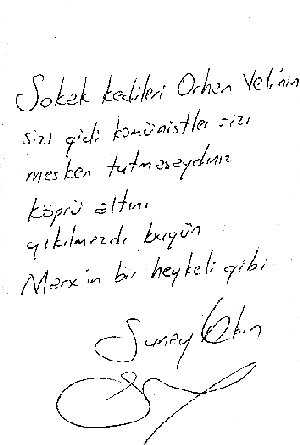 Sokak kedileri Orhan Veli'nin
sizi gidi komünistler sizi
mesken tutmasaydınız
köprü altını
yıkılmazdı bugün
Marx'ın bir heykeli gibi
Sunay Akın